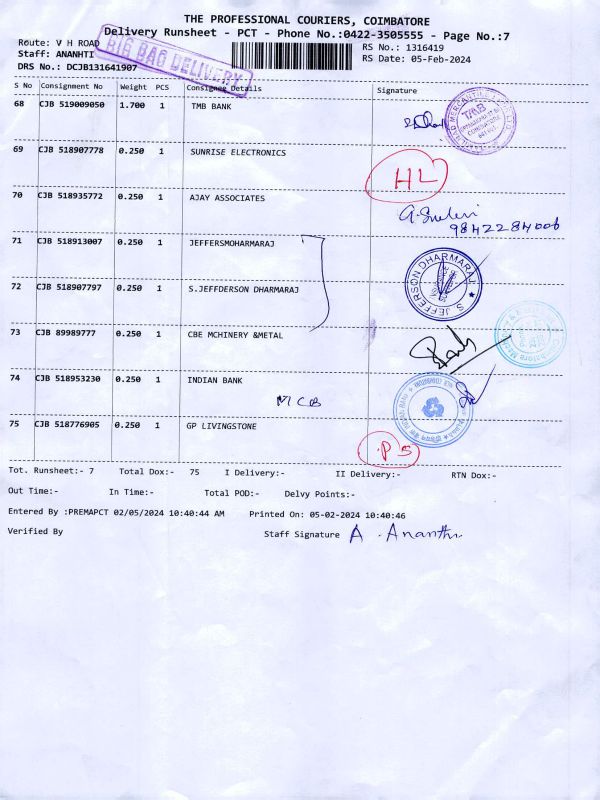 THE PROFESSIONAL COURIERS, COIMBATORE
Delivery Runsheet - PCT - Phone No.:0422-3505555 - Page No.:7
Route: V H ROAD
RS No.: 1316419
Staff: ANANHTI
RS Date: 05-Feb-2024
BIG BAG DELIVERY
DRS No.: DCJB131641907
S No Consignment No Weight PCS Consignee Details Signature
68 CJB 519009050 1.700 1 TMB BANK
TMB
69 CJB 518907778 0.250 1 SUNRISE ELECTRONICS
HL
70 CJB 518935772 0.250 1 AJAY ASSOCIATES
9842284006
71 CJB 518913007 0.250 1 JEFFERSMOHARMARAJ
S. JEFFERSON DHARMARAJ
72 CJB 518907797 0.250 1 S.JEFFDERSON DHARMARAJ
73 CJB 89989777 0.250 1 CBE MCHINERY &METAL
74 CJB 518953230 0.250 1 INDIAN BANK
M COB
75 CJB 518776905 0.250 1 GP LIVINGSTONE
PS
Tot. Runsheet:- 7 Total Dox:- 75 I Delivery:- II Delivery:- RTN Dox:-
Out Time:- In Time:- Total POD:- Delvy Points:-
Entered By :PREMAPCT 02/05/2024 10:40:44 AM Printed On: 05-02-2024 10:40:46
Verified By Staff Signature A. Ananthi